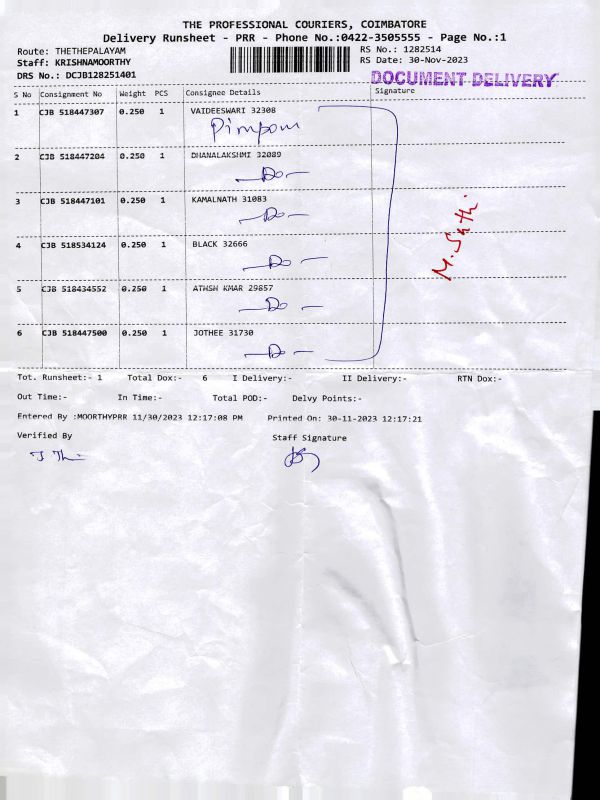 THE PROFESSIONAL COURIERS, COIMBATORE
Delivery Runsheet - PRR - Phone No.:0422-3505555 - Page No.:1
Route: THETHEPALAYAM
RS No.: 1282514
Staff: KRISHNAMOORTHY
RS Date: 30-Nov-2023
DRS No.: DCJB128251401
DOCUMENT DELIVERY
S No Consignment No Weight PCS Consignee Details Signature
1 CJB 518447307 0.250 1 VAIDEESWARI 32308
2 CJB 518447204 0.250 1 DHANALAKSHMI 32089
—Do—
3 CJB 518447101 0.250 1 KAMALNATH 31083
—Do—
4 CJB 518534124 0.250 1 BLACK 32666
—Do—
5 CJB 518434552 0.250 1 ATHSH KMAR 29857
—Do—
6 CJB 518447500 0.250 1 JOTHEE 31730
—Do—
Tot. Runsheet:- 1 Total Dox:- 6 I Delivery:- II Delivery:- RTN Dox:-
Out Time:- In Time:- Total POD:- Delvy Points:-
Entered By :MOORTHYPRR 11/30/2023 12:17:08 PM Printed On: 30-11-2023 12:17:21
Verified By Staff Signature